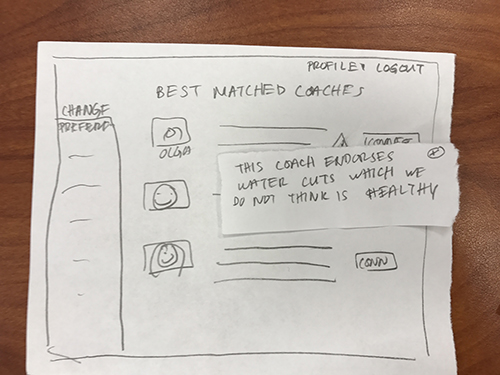 PROFILE▾ LOGOUT
BEST MATCHED COACHES
CHANGE
OLGA
THIS COACH ENDORSES
WATER CUTS WHICH WE
DO NOT THINK IS HEALTHY
CONN